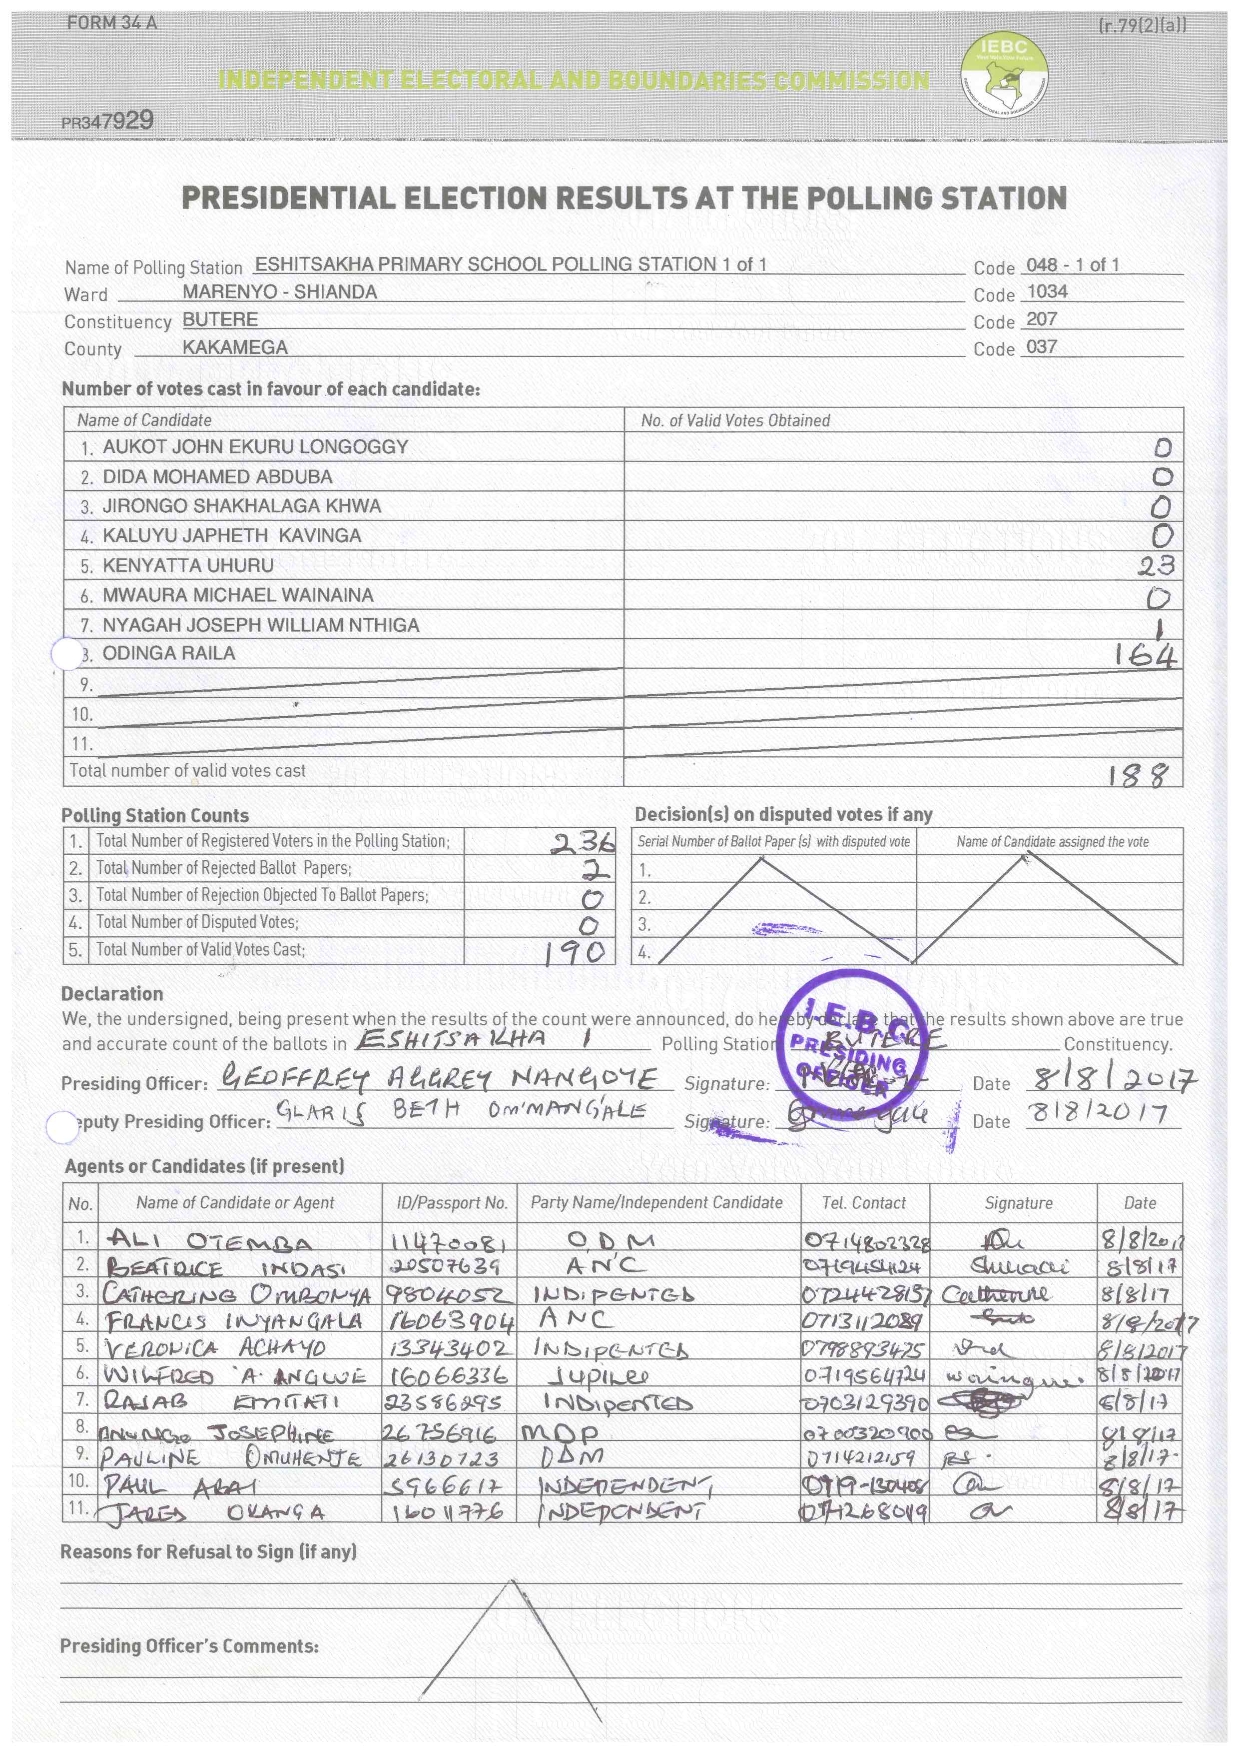 FORM 34 A
(r.79(2)(a))
IEBC
INDEPENDENT ELECTORAL AND BOUNDARIES COMMISSION
PR347929
PRESIDENTIAL ELECTION RESULTS AT THE POLLING STATION
Name of Polling Station ESHITSAKHA PRIMARY SCHOOL POLLING STATION 1 of 1 Code 048 - 1 of 1
Ward MARENYO - SHIANDA Code 1034
Constituency BUTERE Code 207
County KAKAMEGA Code 037
Number of votes cast in favour of each candidate:
Name of Candidate No. of Valid Votes Obtained
1. AUKOT JOHN EKURU LONGOGGY 0
2. DIDA MOHAMED ABDUBA 0
3. JIRONGO SHAKHALAGA KHWA 0
4. KALUYU JAPHETH KAVINGA 0
5. KENYATTA UHURU 23
6. MWAURA MICHAEL WAINAINA 0
7. NYAGAH JOSEPH WILLIAM NTHIGA 1
8. ODINGA RAILA 164
9.
10.
11.
Total number of valid votes cast 188
Polling Station Counts
1. Total Number of Registered Voters in the Polling Station; 236
2. Total Number of Rejected Ballot Papers; 2
3. Total Number of Rejection Objected To Ballot Papers; 0
4. Total Number of Disputed Votes; 0
5. Total Number of Valid Votes Cast; 190
Decision(s) on disputed votes if any
Serial Number of Ballot Paper (s) with disputed vote Name of Candidate assigned the vote
1.
2.
3.
4.
Declaration
We, the undersigned, being present when the results of the count were announced, do hereby declare that the results shown above are true
and accurate count of the ballots in ESHITSAKHA 1 Polling Station BUTERE Constituency.
I.E.B.C.
PRESIDING
OFFICER
Presiding Officer: GEOFFREY AGGREY NANGOYE Signature: Date 8/8/2017
eputy Presiding Officer: GLARIS BETH OM'MANG'ALE Signature: Date 8/8/2017
Agents or Candidates (if present)
No. Name of Candidate or Agent ID/Passport No. Party Name/Independent Candidate Tel. Contact Signature Date
1. ALI OTEMBA 11470081 ODM 0714802328 8/8/2017
2. BEATRICE INDASI 20507639 ANC 8/8/17
3. CATHERING OMBONYA 9804052 INDIPENTED 0724428157 Catherine 8/8/17
4. FRANCIS INYANGALA 16063904 ANC 0713112089 8/8/2017
5. VERONICA ACHAYO 13343402 INDIPENTED 0798893475 8/8/2017
6. WILFRED A. ANGWE 16066336 Jupilee 0719564724 8/8/2017
7. RAJAB EMITATI 23586295 INDIPENTED 0703129390 8/8/17
8. JOSEPHINE 26756916 MDP 0700320900 8/8/17
9. PAULINE OMUHENJE 26130723 ODM 0714212159 8/8/17
10. PAUL 5966617 INDEPENDENT 8/8/17
11. JARED OKANGA 16011776 INDEPENDENT 8/8/17
Reasons for Refusal to Sign (if any)
Presiding Officer's Comments: